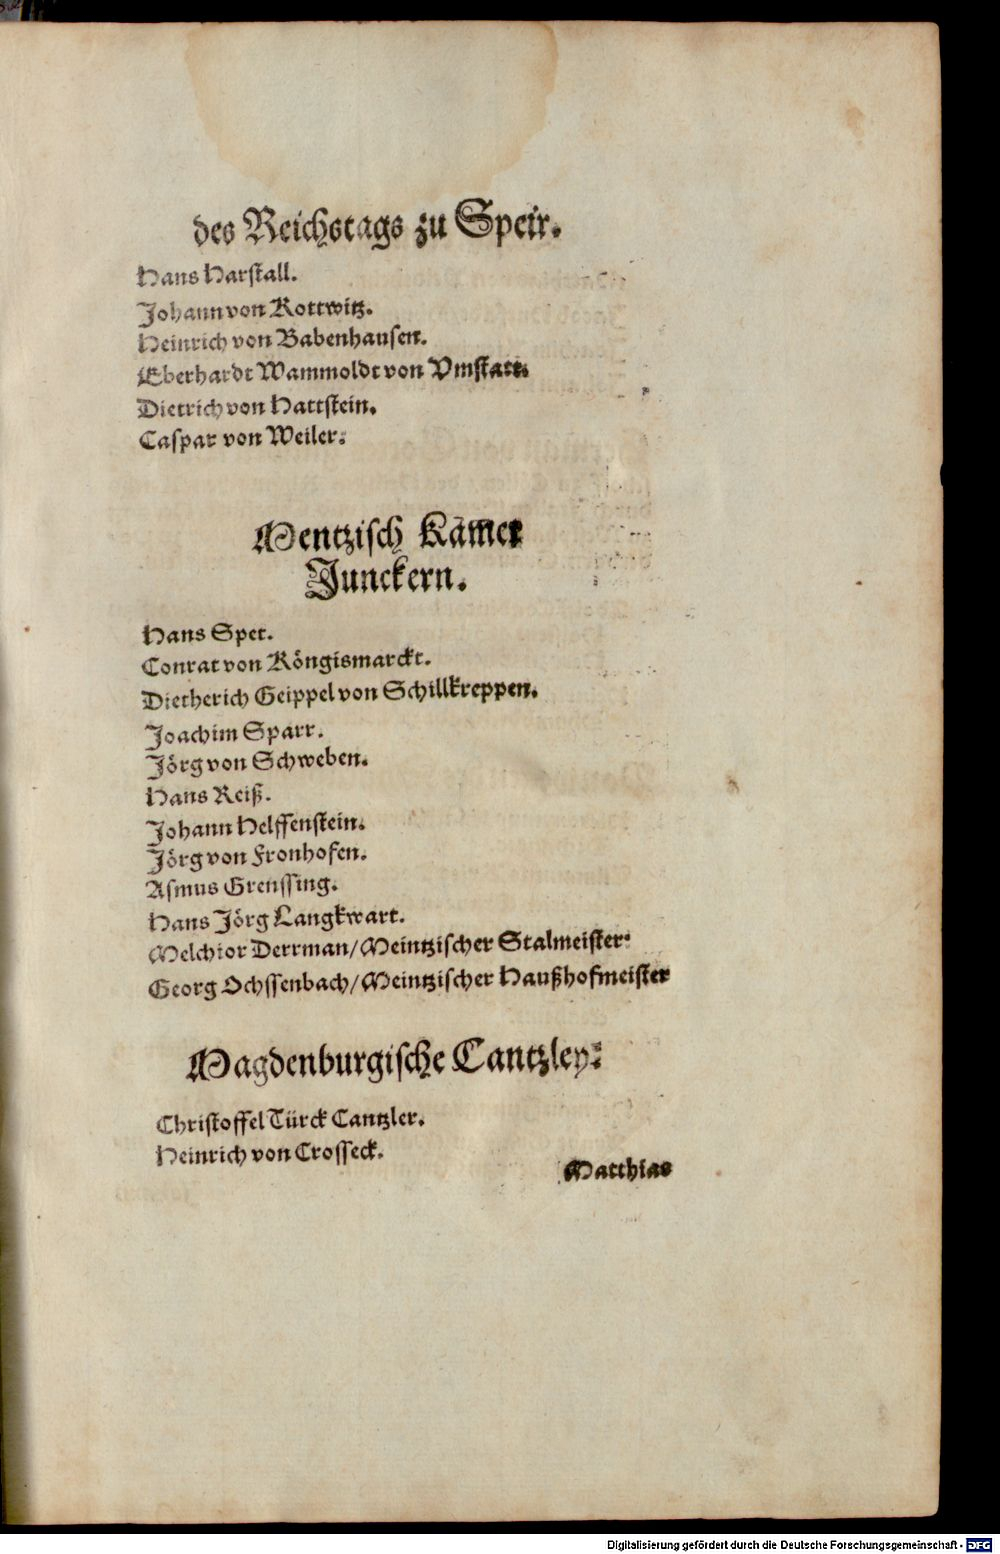 des Reichstags zu Speir.
Hans Harstall.
Johann von Kottwitz.
Heinrich von Babenhausen.
Eberhardt Wammoldt von Vmstatt.
Dietrich von Hattstein.
Caspar von Weiler.
Mentzisch Kam̄er
Junckern.
Hans Spet.
Conrat von Köngismarckt.
Dietherich Geippel von Schillkreppen.
Joachim Sparr.
Jörg von Schweben.
Hans Reiß.
Johann Helffenstein.
Jörg von Fronhofen.
Asmus Grenssing.
Hans Jörg Langkwart.
Melchior Derrman/Meintzischer Stalmeister.
Georg Ochssenbach/Meintzischer Haußhofmeister
Magdenburgische Cantzley.
Christoffel Türck Cantzler.
Heinrich von Crosseck.
Matthias
Digitalisierung gefördert durch die Deutsche Forschungsgemeinschaft - DFG